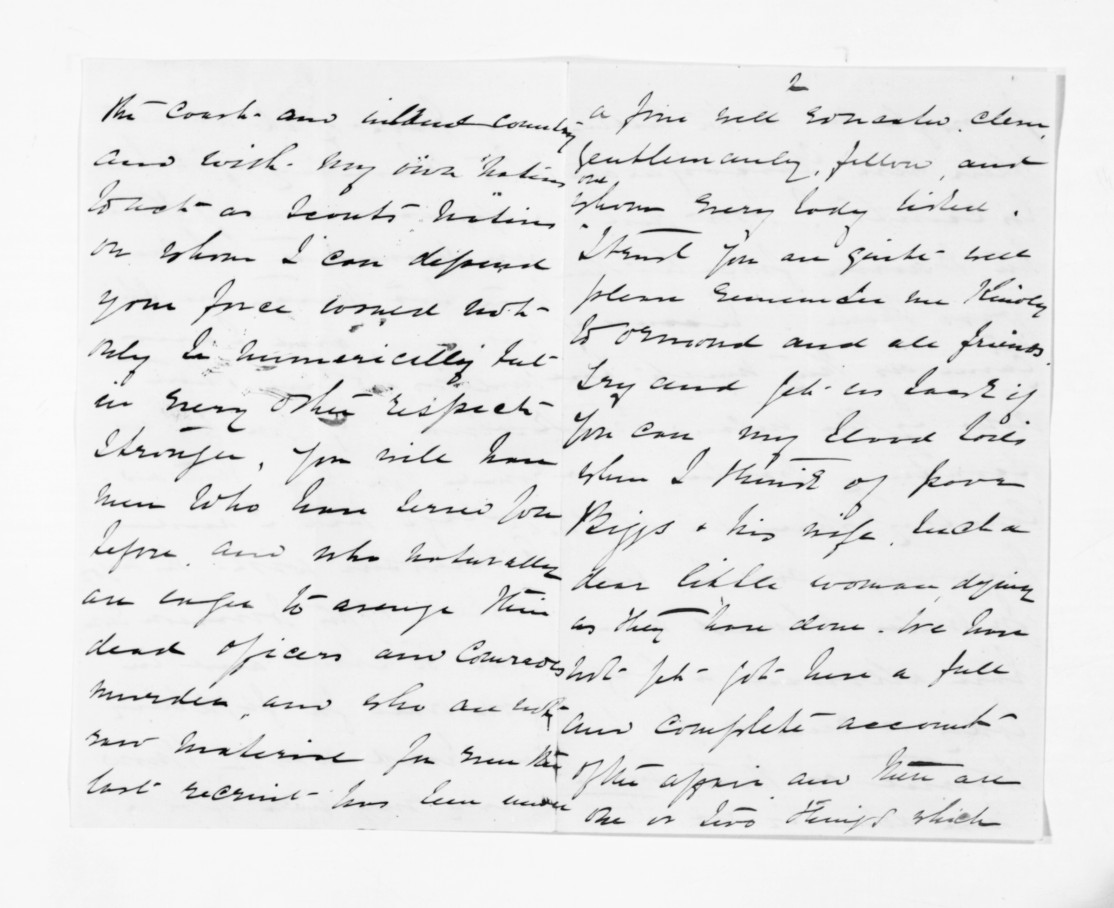 the coast and inland country
and with my own "natives
to act as scouts" natives
on whom I can depend
your force would not
only be numerically but
in every other respect
stronger, you will have
men who have served you
before, and who naturally
are eager to avenge their
dead officers and comrades
murder, and who are not
raw material for even the
last recruit has been under
2
a fine well educated, clever,
gentlemanly, fellow, and
one
whom every body liked.
I trust you are quite well
please remember me kindly
to Ormond and all friends
Try and get us back if
you can my blood boils
when I think of poor
Biggs & his wife, such a
dear little woman, dying
as they have done. We have
not yet got here a full
and complete account
of the affair and there are
one or two things which